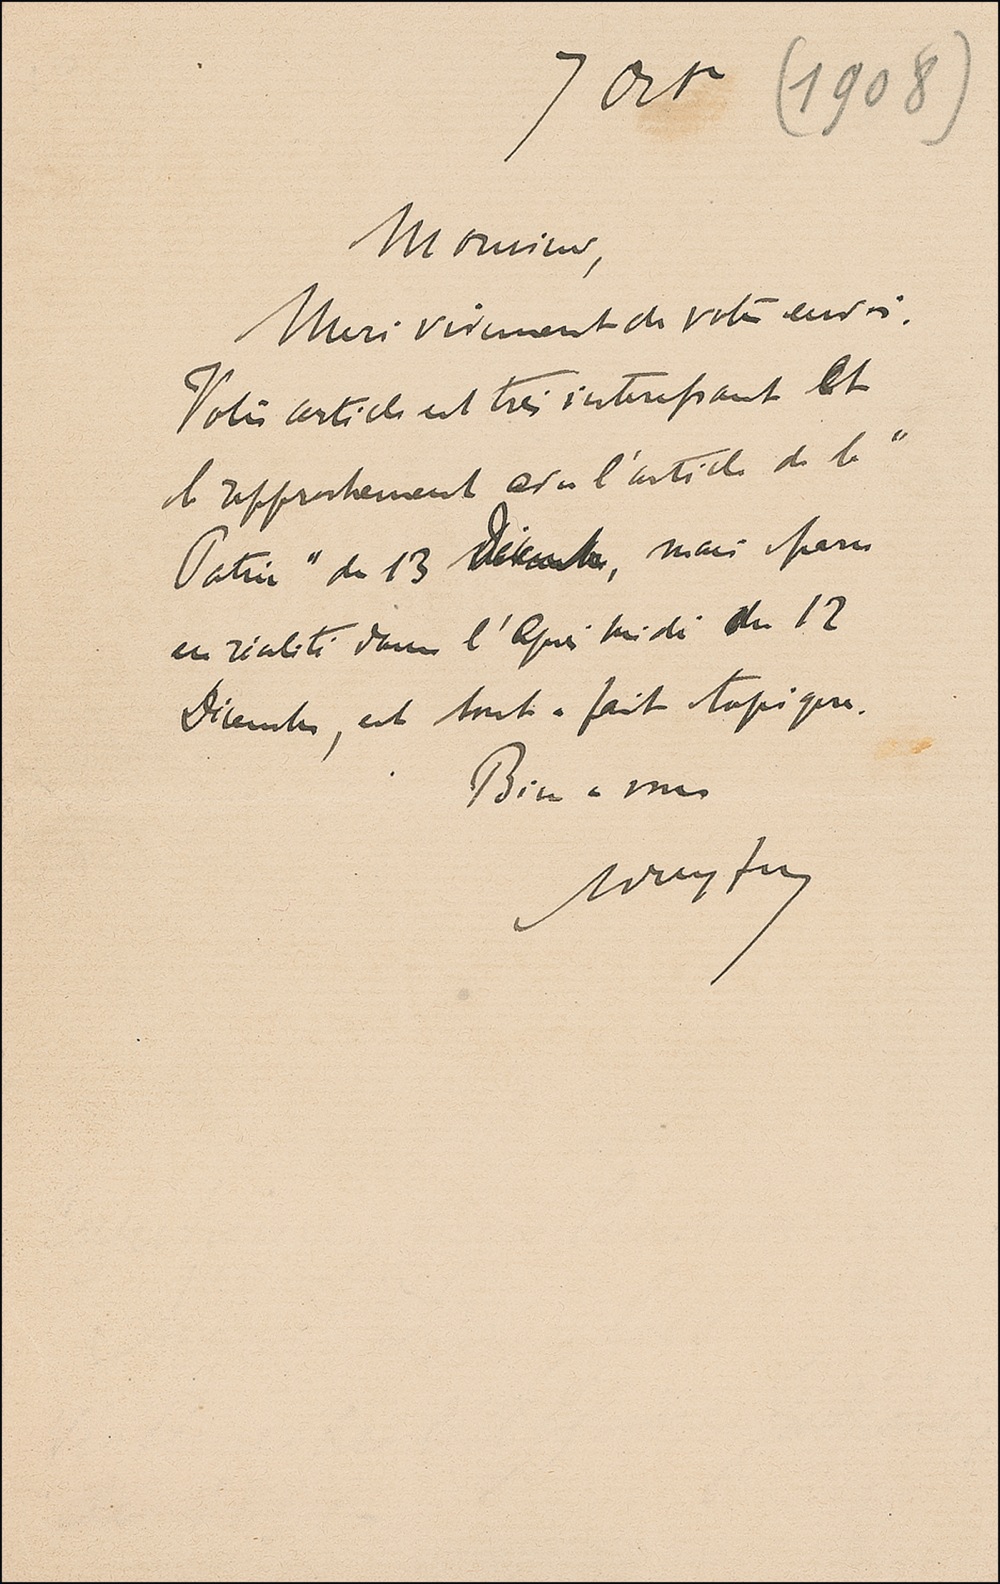 7 Oct (1908)
Monsieur,
Merci vivement de votre envoi.
Votre article est très interessant Et
le rapprochement avec l'article de la "
Patrie" du 13 Décembre, mais paru
en réalité dans l'après midi du 12
Décembre, est tout a fait typique.
Bien a vous
ADreyfus